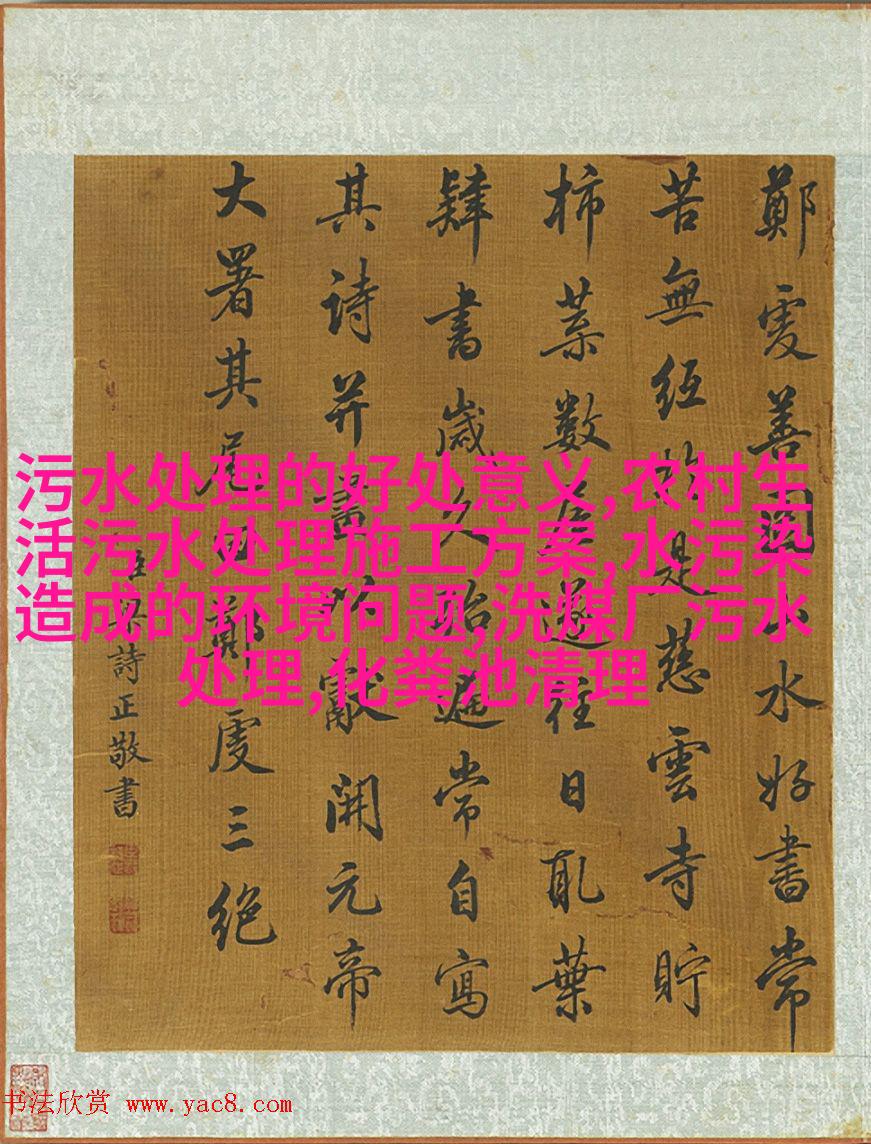 鄭虔善圖山水好書常
苦無紙於是慈雲寺貯
柿葉數屋遂往日取葉
肄書歲久殆遍常自寫
其詩并畫以獻開元帝
大署其尾曰鄭虔三絕
臣梁詩正敬書
污水处理的好处意义,农村生
活污水处理施工方案,水污染
造成的环境问题,洗煤厂污水
处理,化粪池清理
书法欣赏 www.yac8.com